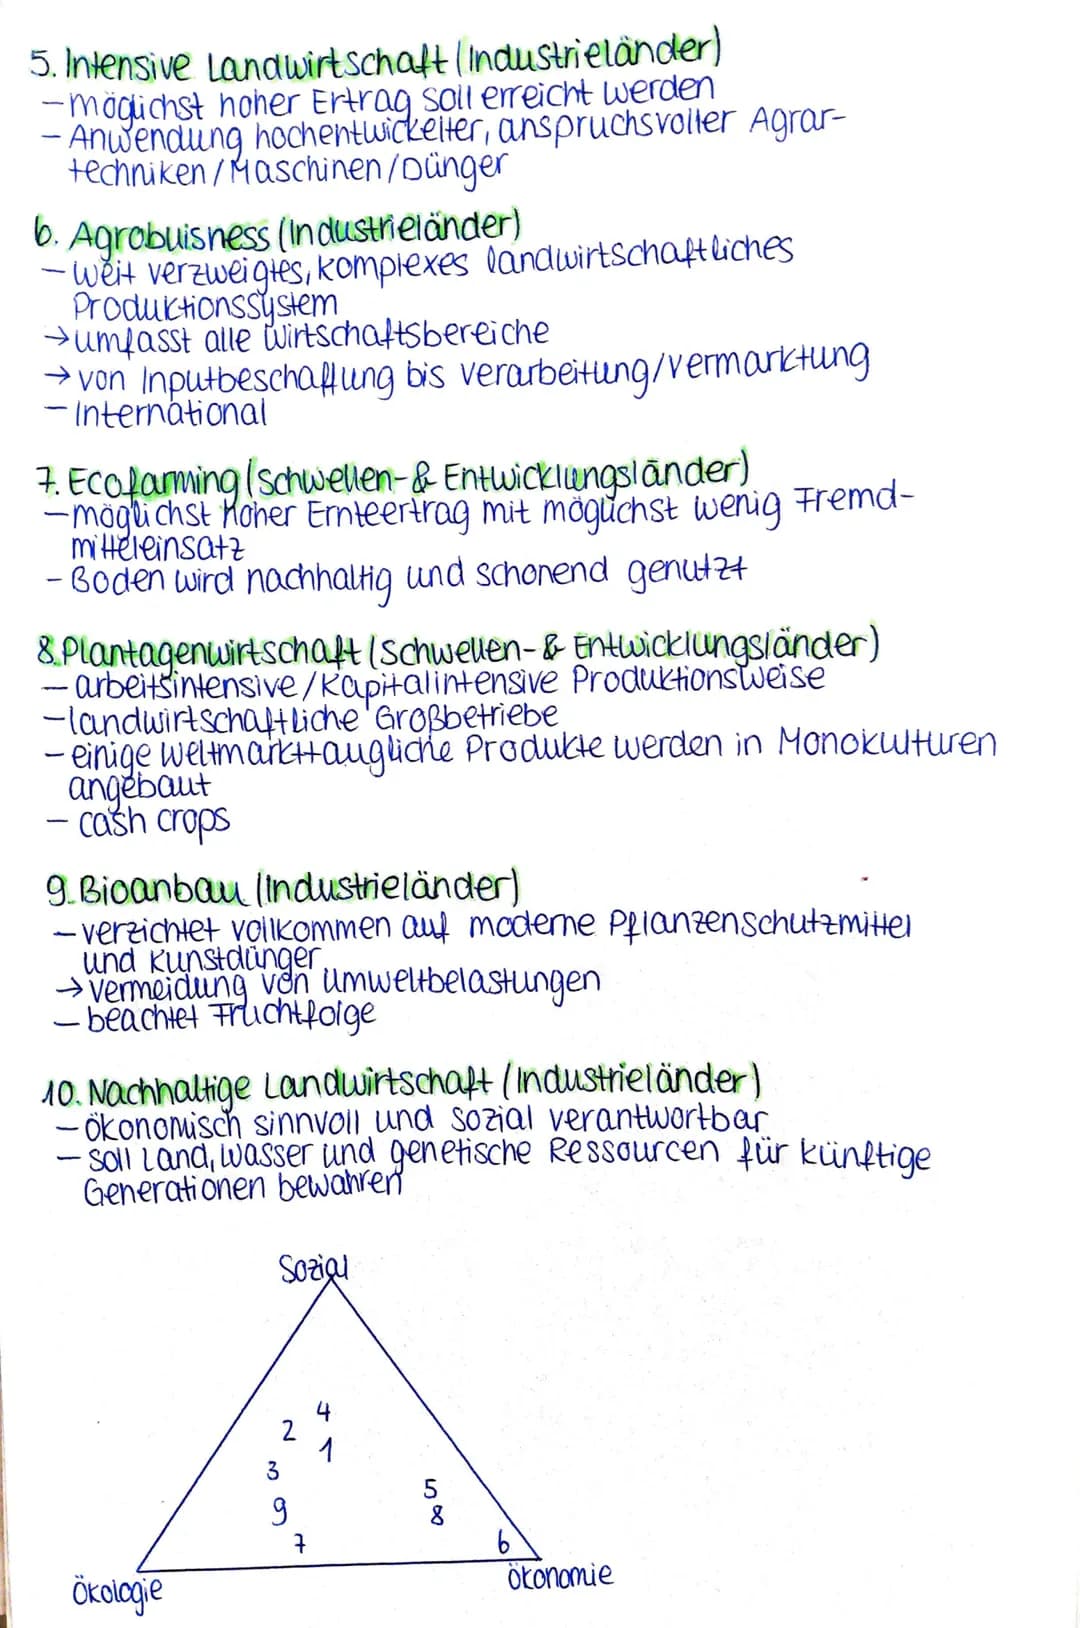 5. Intensive Landwirtschaft (Industrieländer)
- möglichst hoher Ertrag soll erreicht werden
- Anwendung hochentwickelter, anspruchsvoller Agrar-
techniken/Maschinen/Dünger
6. Agrobuisness (Industrieländer)
- weit verzweigtes, komplexes landwirtschaftliches
Produktionssystem
→ umfasst alle Wirtschaftsbereiche
→ von Inputbeschaffung bis Verarbeitung/Vermarktung
- International
7. Ecofarming (Schwellen- & Entwicklungsländer)
- möglichst hoher Ernteertrag mit möglichst wenig Fremd-
mitteleinsatz
- Boden wird nachhaltig und schonend genutzt
8. Plantagenwirtschaft (Schwellen- & Entwicklungsländer)
- arbeitsintensive/kapitalintensive Produktionsweise
- landwirtschaftliche Großbetriebe
- einige weltmarkttaugliche Produkte werden in Monokulturen
angebaut
- cash crops
9. Bioanbau (Industrieländer)
- verzichtet vollkommen auf moderne Pflanzenschutzmittel
und Kunstdünger
→ Vermeidung von Umweltbelastungen
- beachtet Fruchtfolge
10. Nachhaltige Landwirtschaft (Industrieländer)
- ökonomisch sinnvoll und sozial verantwortbar
- soll Land, Wasser und genetische Ressourcen für künftige
Generationen bewahren
Sozial
4
2
1
3
5
9
8
7
6
Ökologie
Ökonomie